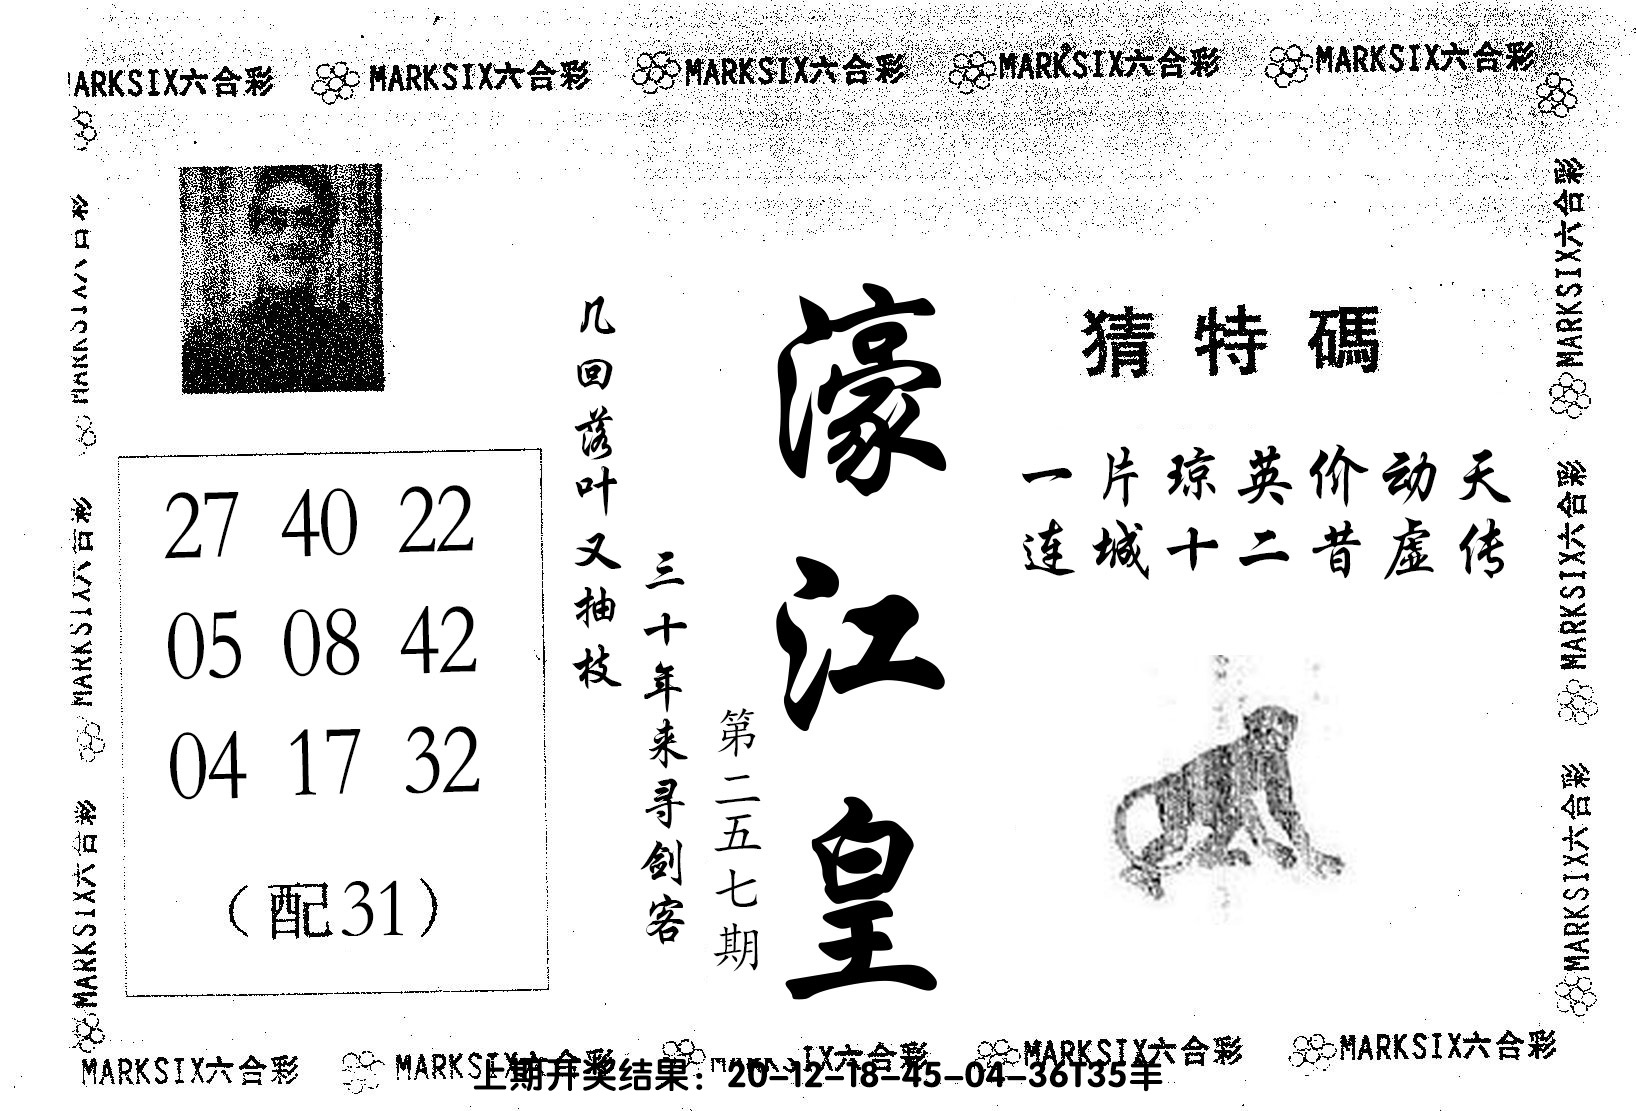 MARKSIX六合彩 MARKSIX六合彩 MARKSIX六合彩 MARKSIX六合彩
猜特碼
一片琼英价动天
连城十二昔虚传
濠江皇
第二五七期
三十年来寻剑客
几回落叶又抽枝
27 40 22
05 08 42
04 17 32
（配31）
MARKSIX六合彩
MARKSIX六合彩
MARKSIX六合彩
MARKSIX六合彩
MARKSIX六合彩
MARKSIX六合彩 MARKSIX六合彩 MARKSIX六合彩 MARKSIX六合彩
上期开奖结果：20-12-18-45-04-36T35羊